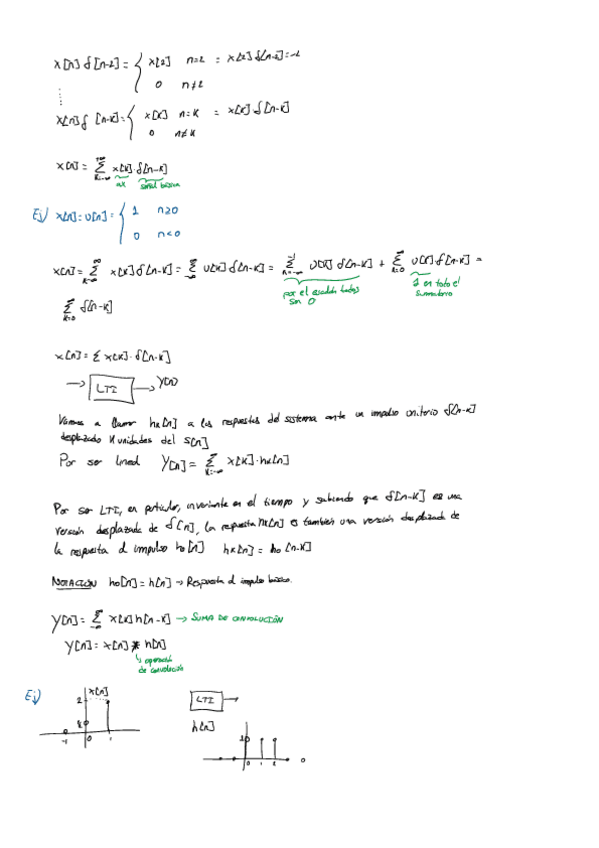 x[n] δ[n-2] = { x[2] n=2 = x[2] δ[n-2]=-2
0 n≠2
x[n] δ[n-k] = { x[k] n=k = x[k] δ[n-k]
0 n≠k
x[n] = ∑ x[k]·δ[n-k]
k=-∞
señal básica
Ej) x[n] = u[n] = { 1 n≥0
0 n<0
x[n] = ∑ x[k] δ[n-k] = ∑ u[k] δ[n-k] = ∑ u[k] δ[n-k] + ∑ u[k] δ[n-k] =
por el escalón todos son 0
1 en todo el sumatorio
∑ δ[n-k]
k=0
x[n] = ∑ x[k]·δ[n-k]
→ LTI → y[n]
Vamos a llamar hk[n] a las respuestas del sistema ante un impulso unitario δ[n-k]
desplazado k unidades del δ[n]
Por ser lineal y[n] = ∑ x[k]·hk[n]
k=-∞
Por ser LTI, en particular, invariante en el tiempo y sabiendo que δ[n-k] es una
versión desplazada de δ[n], la respuesta hk[n] es también una versión desplazada de
la respuesta al impulso h0[n] hk[n] = h0[n-k]
NOTACIÓN h0[n] = h[n] → Respuesta al impulso básico.
y[n] = ∑ x[k] h[n-k] → SUMA DE CONVOLUCIÓN
y[n] = x[n] * h[n]
↳ operación
de convolución
Ej)
x[n]
2
1
-1 0 1
LTI →
h[n]
1
0 1 2